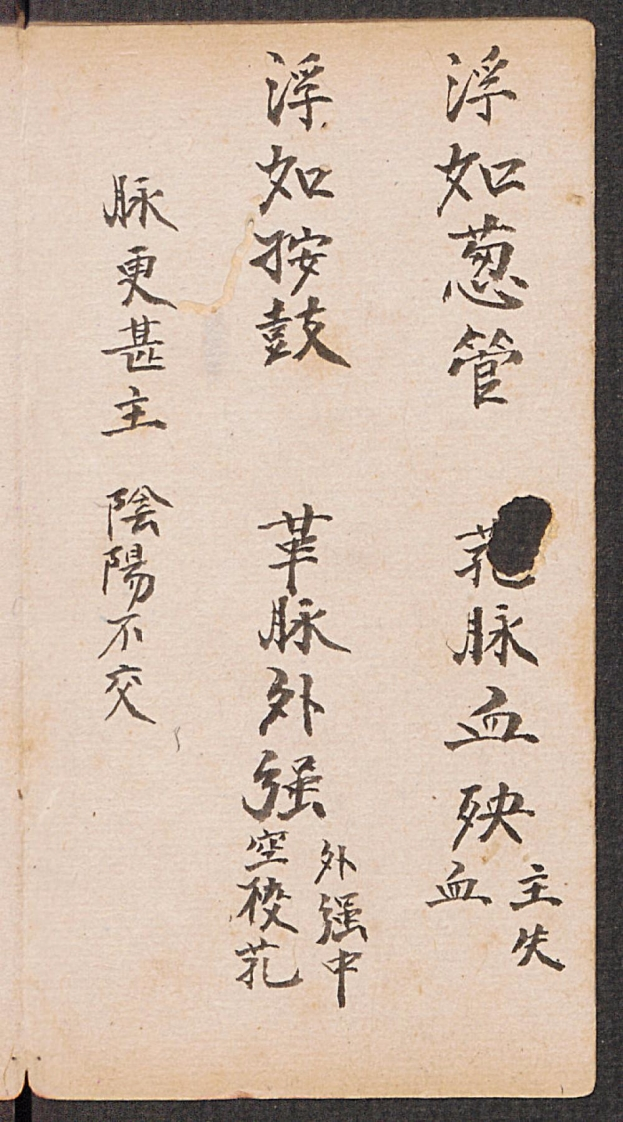 浮如葱管 芤脉血殃主失血
浮如按鼓 革脉外强外强中空校芤
脉更甚主 陰陽不交